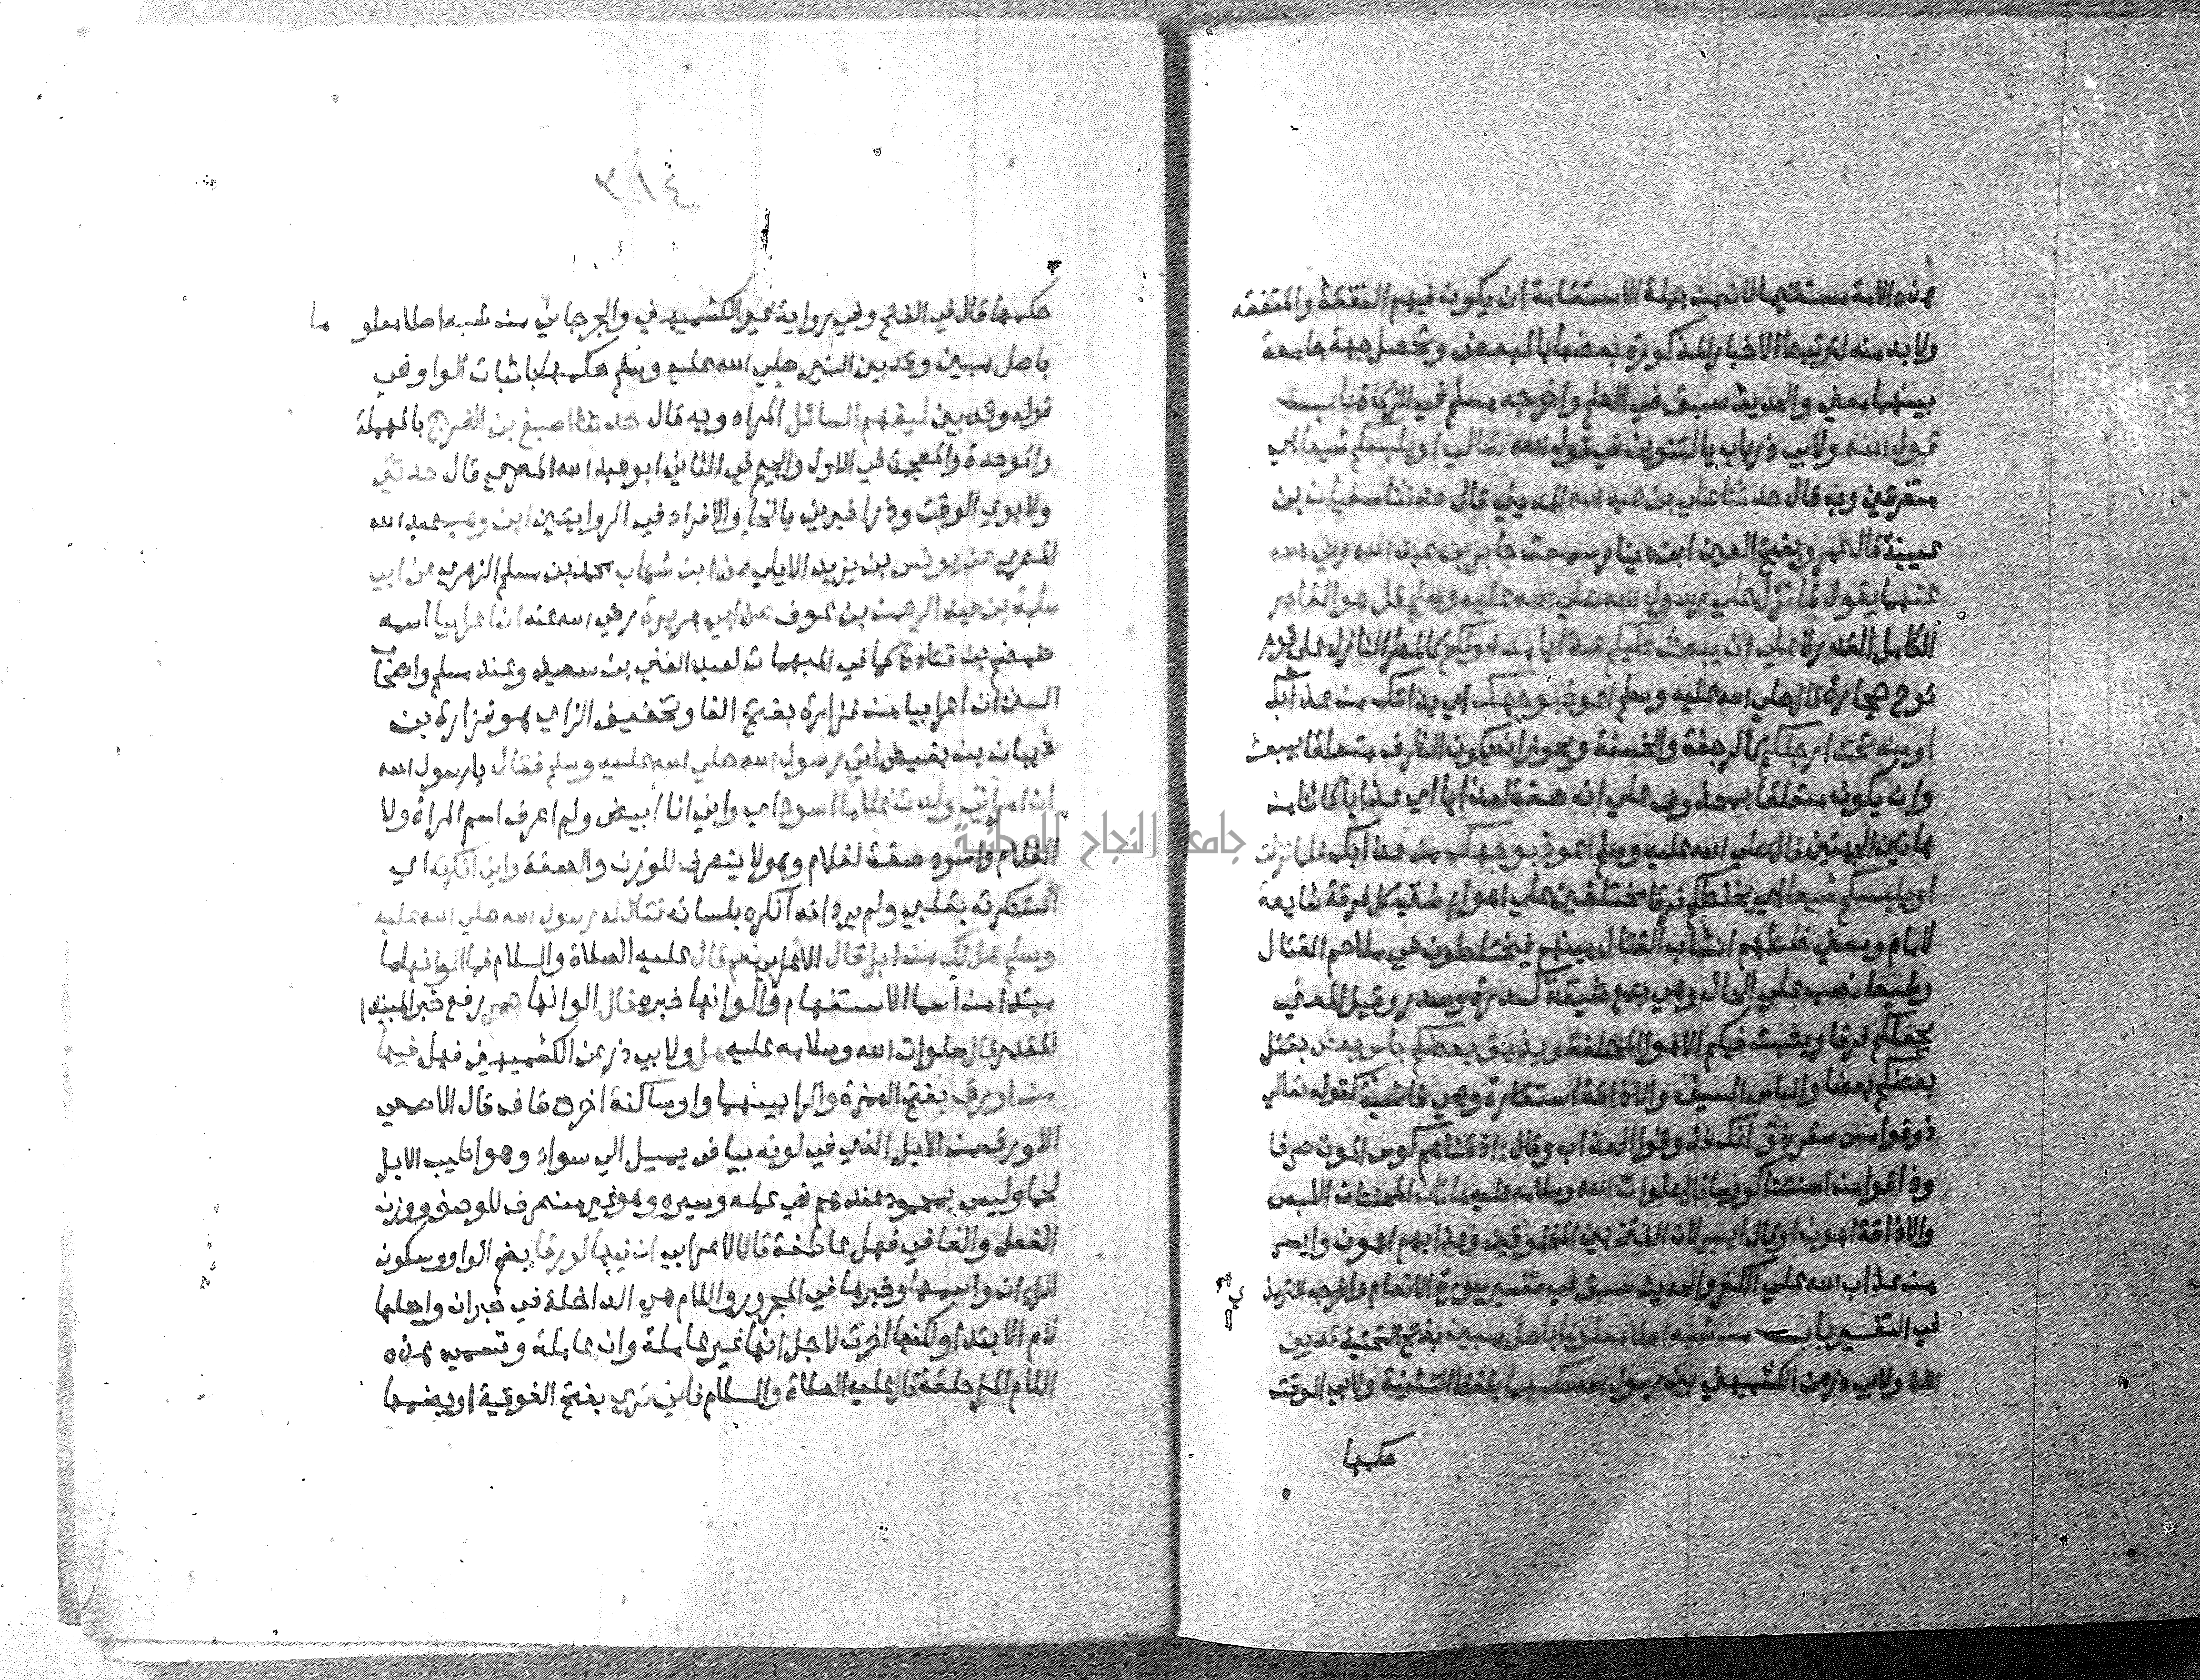 هذه الامة مستقيما لان من جملة الاستقامة ان يكون فيهم التفقه والمتفقه
ولا بد منه لترتبط الاخبار المذكورة بعضها بالبعض وتحصل جهة جامعة
بينهما معني والحديث سبق في العلم واخرجه مسلم في الزكاة باب
قول الله ولابي ذر باب بالتنوين في قول الله تعالي او يلبسكم شيعا اي
متفرقين وبه قال حدثنا علي بن عبد الله المديني قال حدثنا سفيان بن
عيينة قال عمرو بفتح العين ابن دينار سمعت جابر بن عبد الله رضي الله
عنهما يقول لما نزل علي رسول الله صلي الله عليه وسلم قل هو القادر
الكامل القدرة علي ان يبعث عليكم عذابا من فوقكم كالمطر النازل علي قوم
نوح حجارة قال صلي الله عليه وسلم اعوذ بوجهك اي بذاتك من عذابك
او من تحت ارجلكم كالرجفة والخسفة ويجوز ان يكون الظرف متعلقا بيبعث
وان يكون متعلقا بمحذوف علي انه صفة لعذابا اي عذابا كائنا من
هاتين الجهتين قال صلي الله عليه وسلم اعوذ بوجهك من عذابك فلما نزلت
او يلبسكم شيعا اي يخلطكم فرقا مختلفين علي اهواء شتي كل فرقة شايعة
لامام ومعني خلطهم انشاب القتال بينهم فيختلطون في ملاحم القتال
وشيعا نصب علي الحال وهي جمع شيعة كسدرة وسدر وقيل المعني
يجعلكم فرقا ويثبت فيكم الاهوا المختلفة ويذيق بعضكم باس بعض بقتل
بعضكم بعضا والباس السيف والاذاقة استعارة وهي فاشية كقوله تعالي
ذوقوا مس سقر ذق انك فذوقوا العذاب وقال اذقناهم كوس الموت صرفا
وذاقوا من اسنتنا كوسا قال صلوات الله وسلامه عليه هاتان المحنتان اللبس
والاذاقة اهون او قال ايسر لان الفتن بين المخلوقين وعذابهم اهون وايسر
من عذاب الله علي الكفر والحديث سبق في تفسير سورة الانعام واخرجه الترمذ
ي
في التفسير باب من شبه اصلا معلوما باصل مبين بفتح التحتية قد بين
الله ولابي ذر عن الكشميهني بين رسول الله حكمهما بلفظ التثنية ولابي الوقت
حكمها
٣١٤
حكمها قال في الفتح وفي رواية غير الكشميهني والجرجاني من شبه اصلا معلو ما
باصل مبين وقد بين النبي صلي الله عليه وسلم حكمهما باثبات الواو في
قوله وقد بين ليفهم السائل المراد وبه قال حدثنا اصبغ بن الفرج بالمهملة
والموحدة والمعجمة في الاول والجيم في الثاني ابو عبد الله المصري قال حدثني
ولابوي الوقت وذر اخبرني بالخاء والافراد في الروايتين ابن وهب عبد الله
المصري عن يونس بن يزيد الايلي عن ابن شهاب محمد بن مسلم الزهري عن ابي
سلمة بن عبد الرحمن بن عوف عن ابي هريرة رضي الله عنه ان اعرابيا اسمه
ضمضم بن قتادة كما في المبهمات لعبد الغني بن سعيد وعند مسلم واصحاب
السنن ان اعرابيا من فزارة بفتح الفا وتخفيف الزاي هو فزارة بن
ذبيان بن بغيض اتي رسول الله صلي الله عليه وسلم فقال يا رسول الله
ان امراتي ولدت غلاما اسود اي واني انا ابيض ولم اعرف اسم المراة ولا
الغلام واسود صفة لغلام وهو لا ينصرف للوزن والصفة واني انكرته اي
استنكرته بقلبي ولم يرد انه انكره بلسانه فقال له رسول الله صلي الله عليه
وسلم هل لك من ابل قال الاعرابي نعم قال عليه الصلاة والسلام فما الوانها ما
مبتدا من اسما الاستفهام والوانها خبره قال الوانها حمر رفع خبر المبتدا
المقدر قال صلوات الله وسلامه عليه هل ولابي ذر عن الكشميهني فهل فيها
من اورق بفتح الهمزة والرا بينهما واو ساكنة اخره قاف قال الاصمعي
الاورق من الابل الذي في لونه بياض يميل الي سواد وهو اطيب الابل
لحما وليس بمحمود عندهم في عمله وسيره وهو غير منصرف للوصف ووزن
الفعل والفا في فهل عاطفة قال الاعرابي ان فيها لورقا بضم الواو وسكون
الراء ان واسمها وخبرها في المجرور واللام هي الداخلة في خبر ان واصلها
لام الابتدا ولكنها اخرت لاجل انها غير عاملة وان عاملة وتسمي هذه
اللام المزحلقة قال عليه الصلاة والسلام فاني تري بفتح الفوقية او بضمها
جامعة النجاح الوطنية